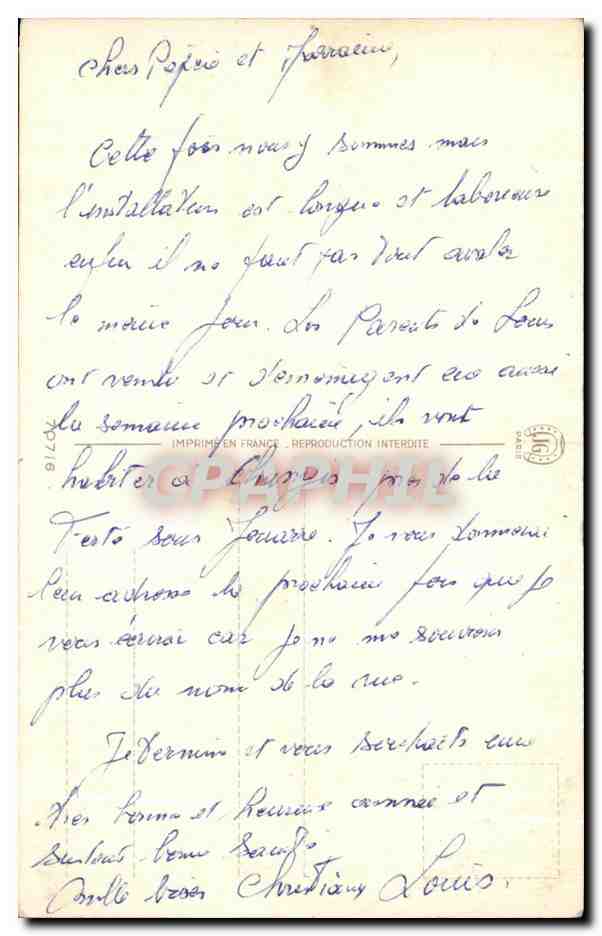 Chers Pépée et Marraine,
Cette fois nous y sommes mais
l'installation est longue et laborieuse
enfin il ne faut pas tout avaler
le même jour. Les Parents de Louis
ont vendu et déménagent eux aussi
la semaine prochaine, ils vont
70716
IMPRIMÉ EN FRANCE - REPRODUCTION INTERDITE
JG
PARIS
CPAPHIL
habiter a près de la
Ferté sous Jouarre. Je vous donnerai
leur adresse la prochaine fois que je
vous écrirai car je ne me souviens
plus du nom de la rue.
Je termine et vous souhaite une
très bonne et heureuse année et
surtout bonne santé.
Mille bises Christiane Louis.